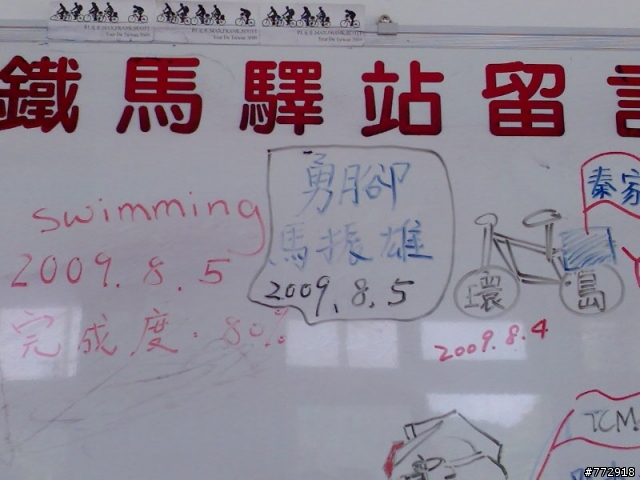 鐵馬驛站留言
swimming
2009.8.5
完成度.80%
勇腳
馬振雄
2009.8.5
環島
2009.8.4
秦家
TCM
#772918